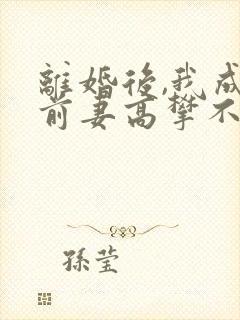 離婚後,我成
前妻高攀不
孫瑩